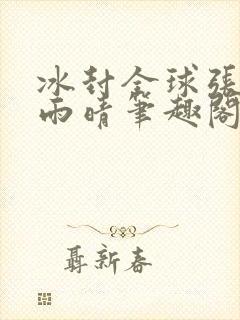 冰封全球張
雨晴筆趣閣
聶新春